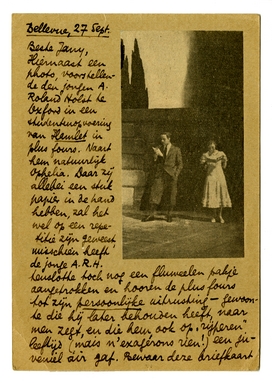 Bellevue, 27 Sept.
Beste Jany,
Hiernaast een
photo, voorstellen-
de den jongen A.
Roland Holst te
Oxford in een
studentenopvoering
van Hamlet in
plus fours. Naast
hem natuurlijk
Ophelia. Daar zij
allebei een stuk
papier in de hand
hebben, zal het
wel op een repe-
titie zijn geweest
misschien heeft
de jonge A.R.H.
tenslotte toch nog een fluweelen pakje
aangetrokken en hooren de plus fours
tot zijn persoonlijke uitrusting – gewoon-
te die hij later behouden heeft, naar
men zegt, en die hem ook op "rijperen"
leeftijd (mais n'exagérons rien!) een ju-
veniel air gaf. Bewaar deze briefkaart